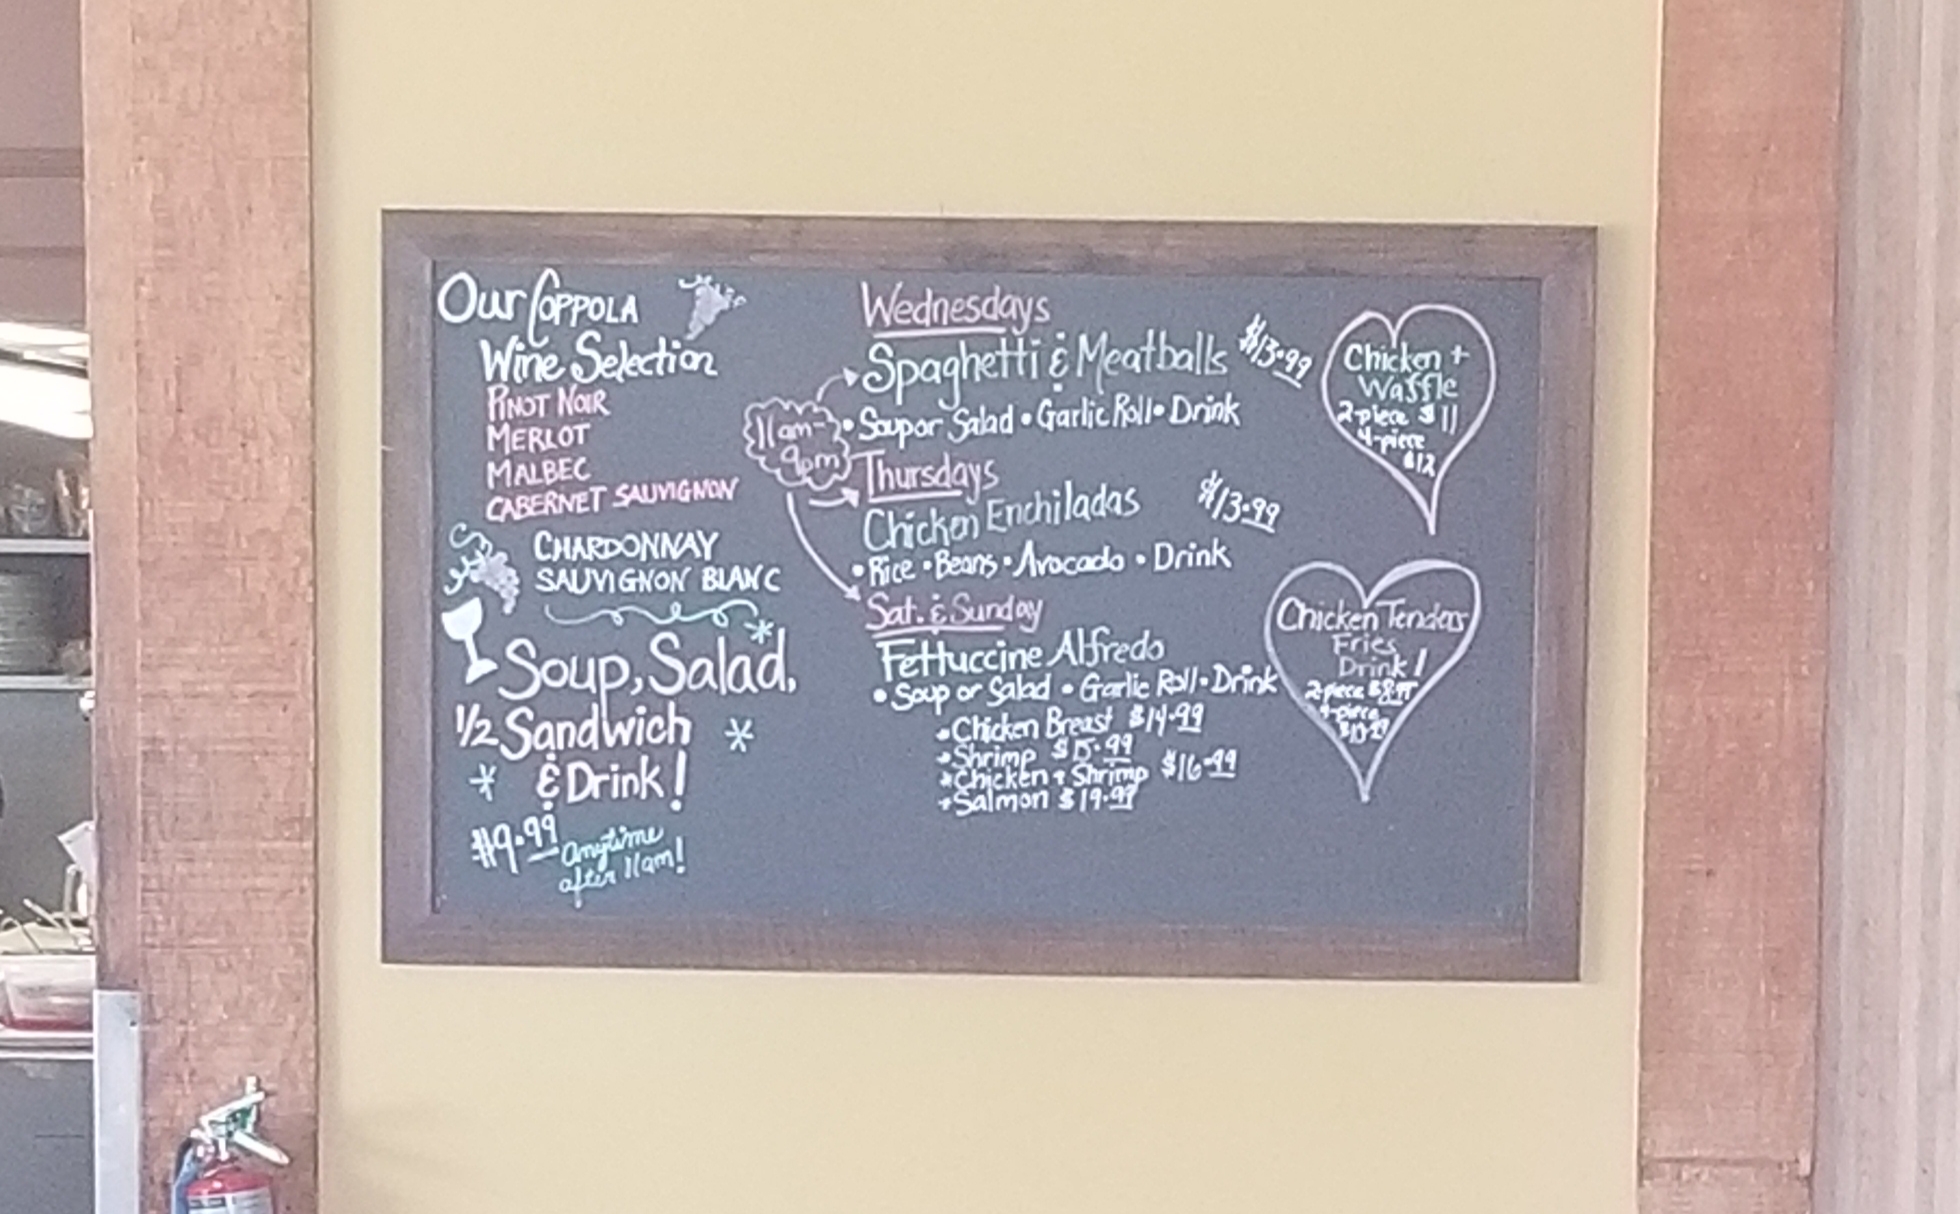 Our COPPOLA
Wine Selection
PINOT NOIR
MERLOT
MALBEC
CABERNET SAUVIGNON
CHARDONNAY
SAUVIGNON BLANC
Soup, Salad,
1/2 Sandwich
& Drink!
$9.99 anytime
after 11am!
11am-
9pm
Wednesdays
Spaghetti & Meatballs $13.99
• Soup or Salad • Garlic Roll • Drink
Thursdays
Chicken Enchiladas $13.99
• Rice • Beans • Avocado • Drink
Sat. & Sunday
Fettuccine Alfredo
• Soup or Salad • Garlic Roll • Drink
Chicken Breast $14.99
Shrimp $15.99
Chicken + Shrimp $16.99
Salmon $19.99
Chicken +
Waffle
2-piece $11
4-piece
$12
Chicken Tenders
Fries
Drink!
2-piece
4-piece